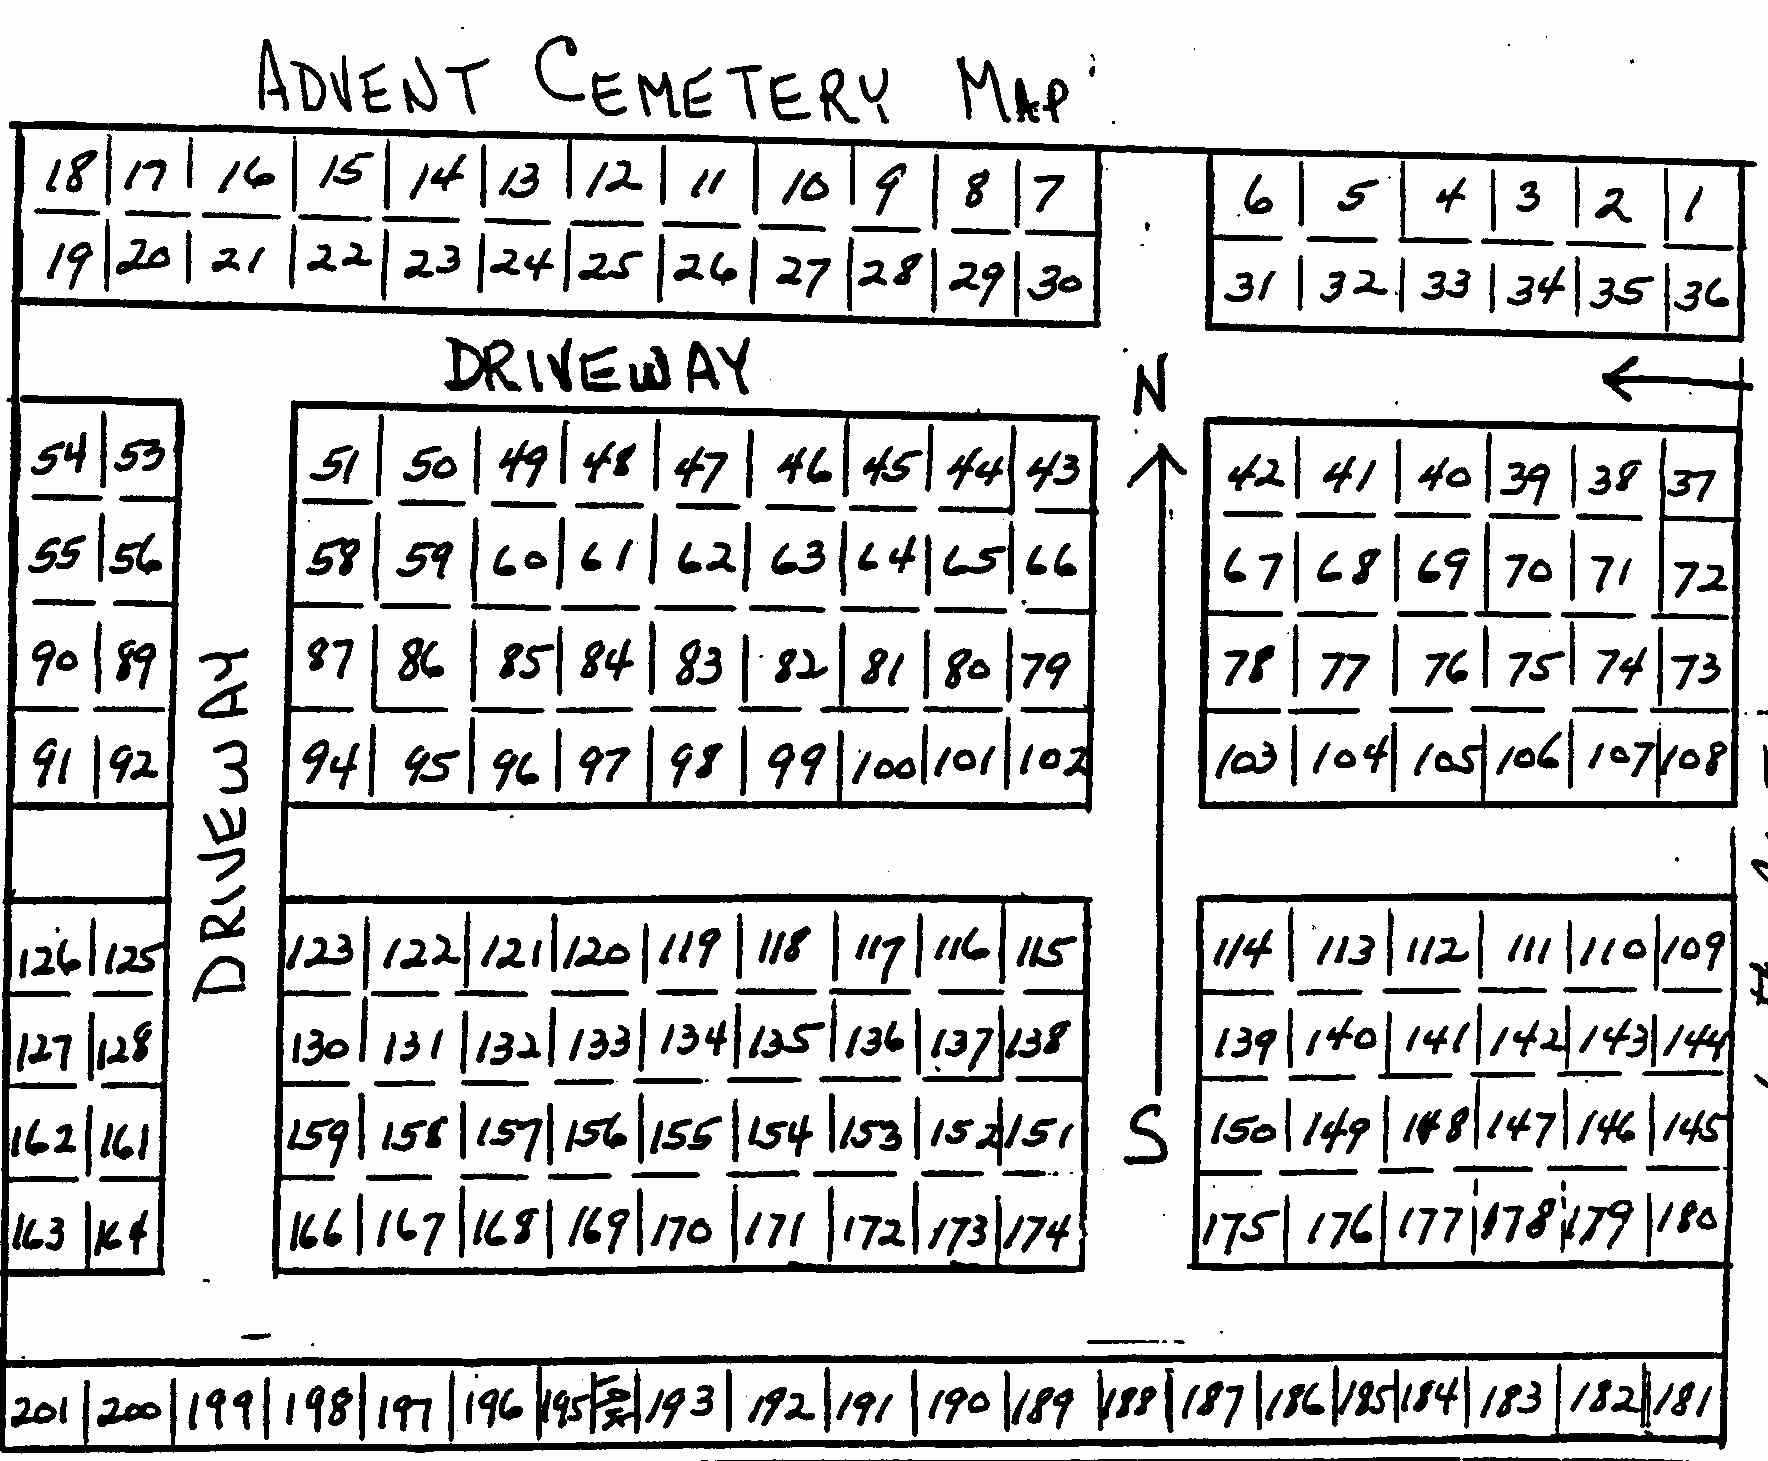 ADVENT CEMETERY MAP
18 17 16 15 14 13 12 11 10 9 8 7 6 5 4 3 2 1
19 20 21 22 23 24 25 26 27 28 29 30 31 32 33 34 35 36
DRIVEWAY
N
54 53 51 50 49 48 47 46 45 44 43 42 41 40 39 38 37
55 56 58 59 60 61 62 63 64 65 66 67 68 69 70 71 72
90 89 87 86 85 84 83 82 81 80 79 78 77 76 75 74 73
91 92 94 95 96 97 98 99 100 101 102 103 104 105 106 107 108
DRIVEWAY
126 125 123 122 121 120 119 118 117 116 115 114 113 112 111 110 109
127 128 130 131 132 133 134 135 136 137 138 139 140 141 142 143 144
162 161 159 158 157 156 155 154 153 152 151 150 149 148 147 146 145
S
163 164 166 167 168 169 170 171 172 173 174 175 176 177 178 179 180
201 200 199 198 197 196 195 194 193 192 191 190 189 188 187 186 185 184 183 182 181